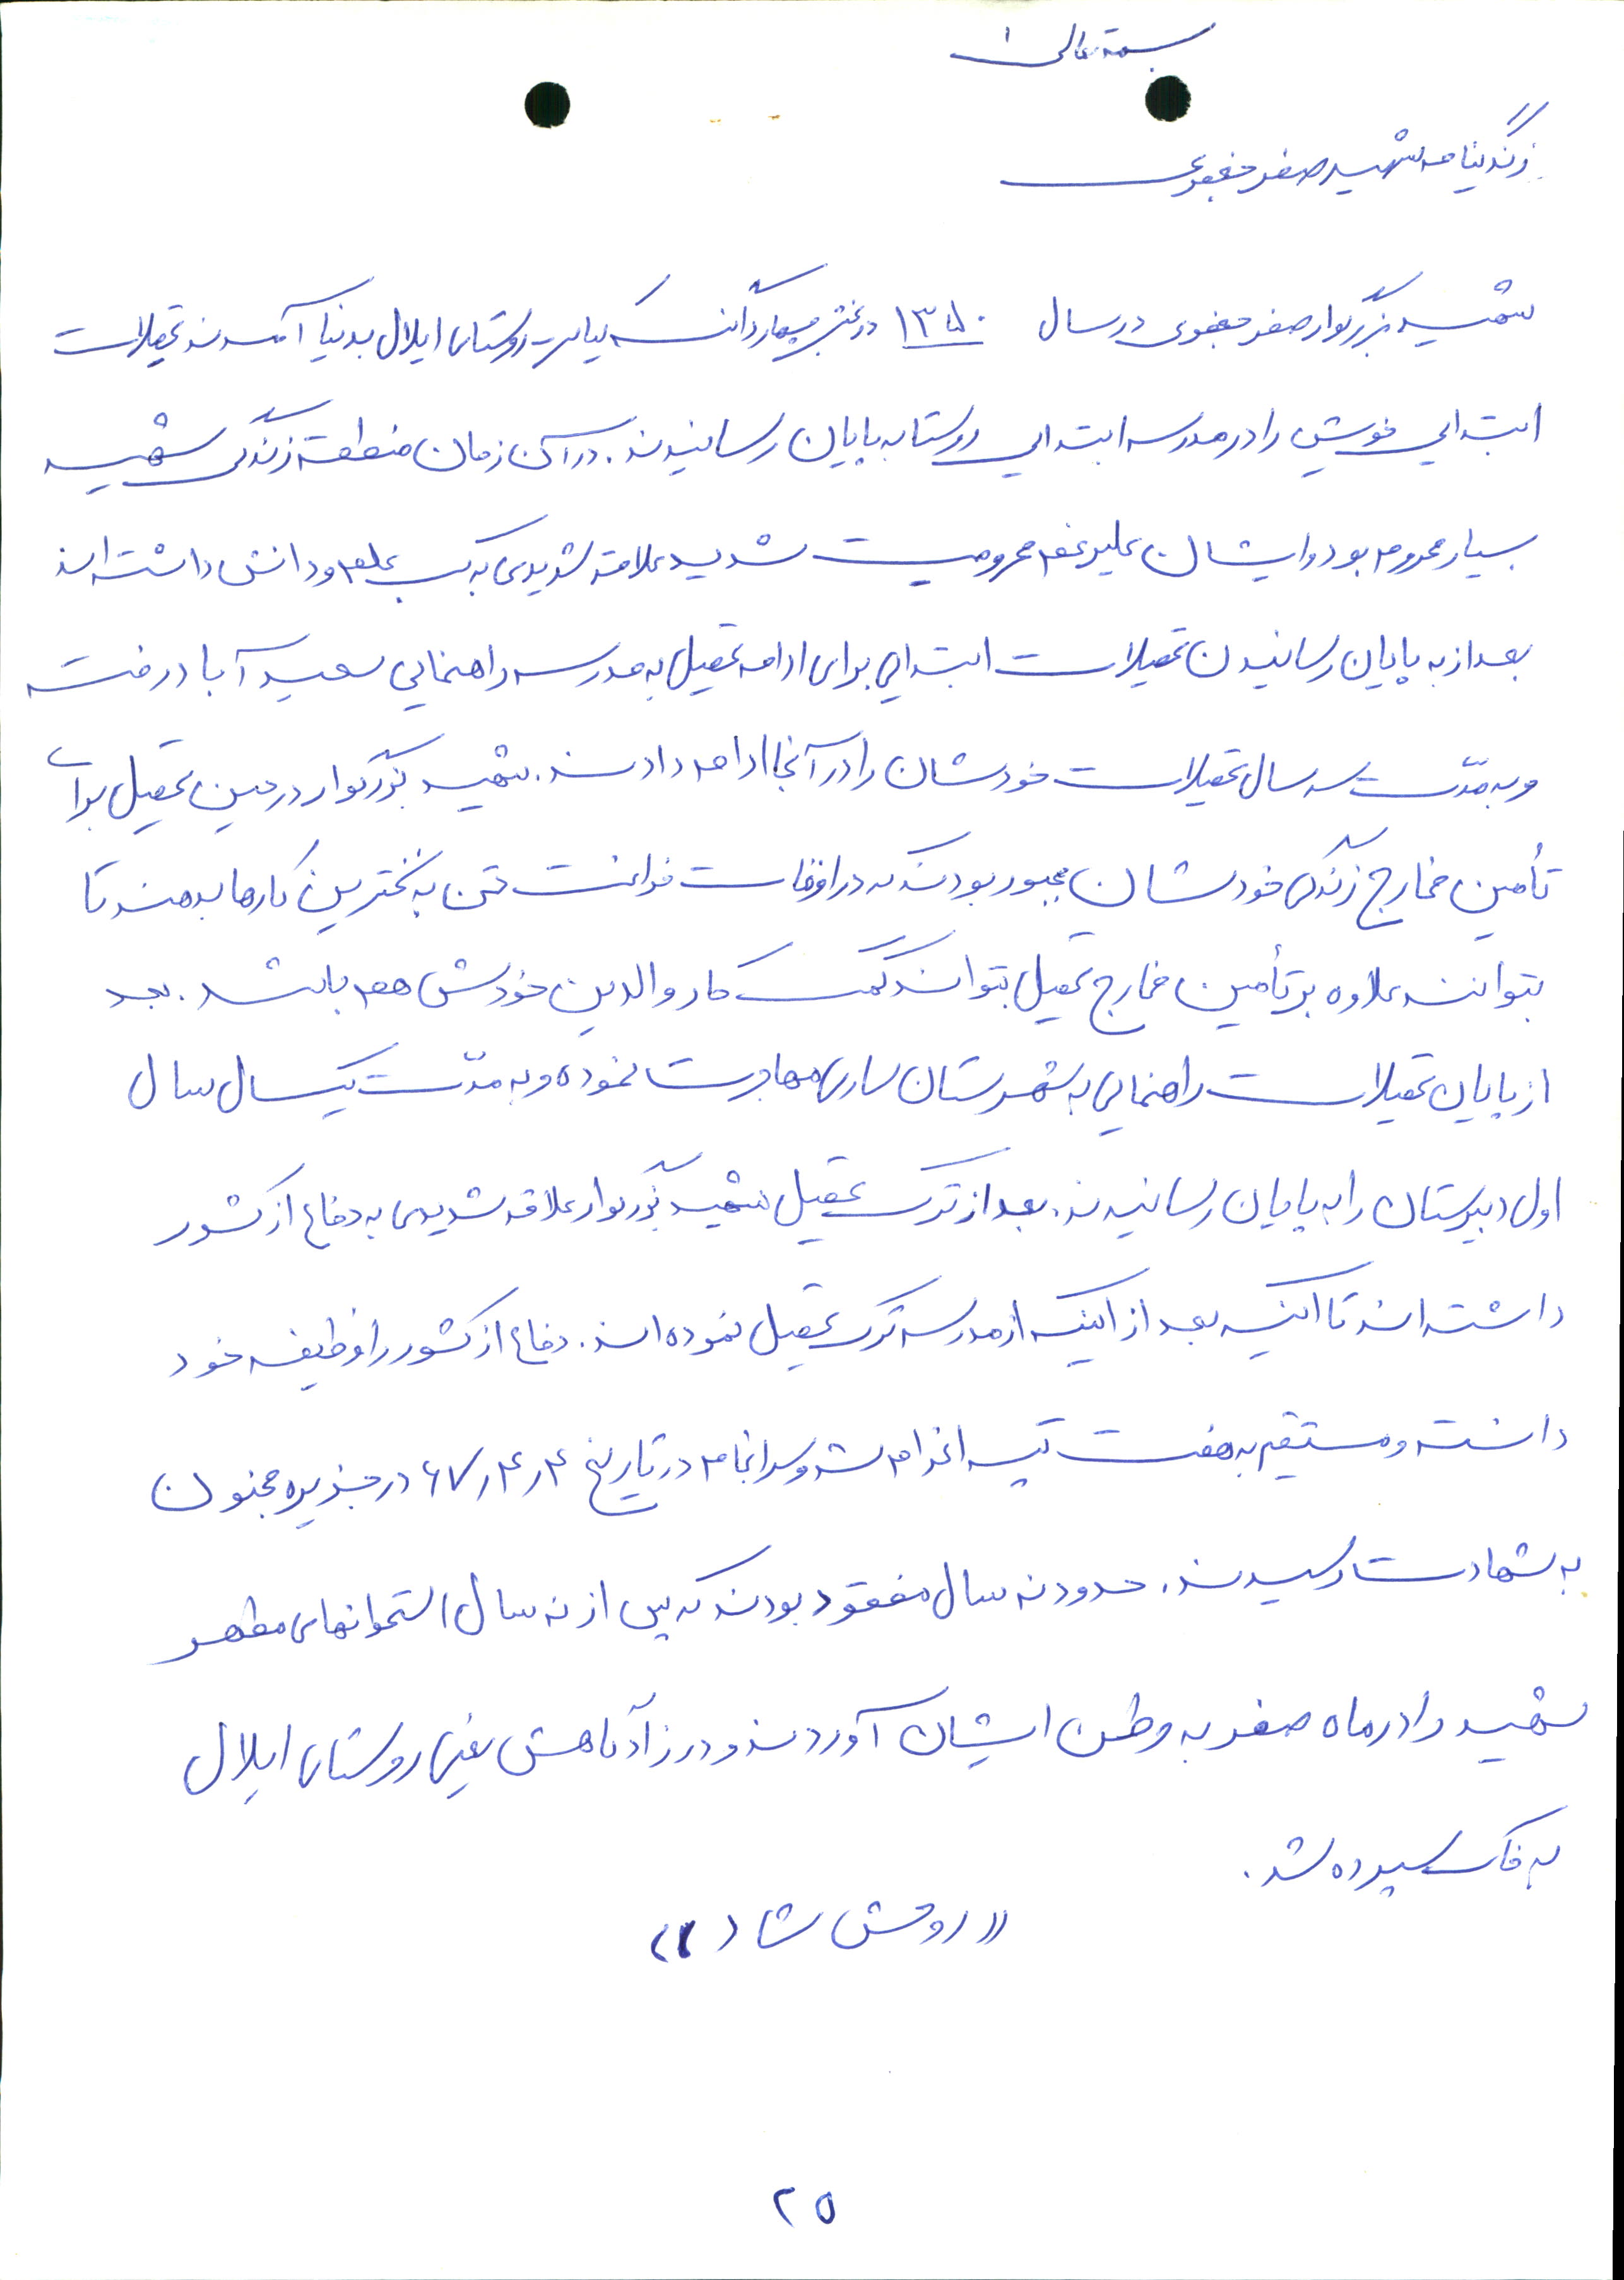 بسمه تعالی
زندگینامه شهید صفر جعفری
شهید بزرگوار صفر جعفری در سال ۱۳۵۰ در بخش چهاردانگه کیاسر روستای ایلال بدنیا آمدند تحصیلات
ابتدایی خویش را در مدرسه ابتدایی روستا به پایان رسانیدند. در آن زمان منطقه زندگی شهید
بسیار محروم بود و ایشان علیرغم محرومیت شدید علاقه شدیدی به کسب علم و دانش داشته اند
بعد از به پایان رسانیدن تحصیلات ابتدایی برای ادامه تحصیل به مدرسه راهنمایی سعید آباد رفته
و به مدّت سه سال تحصیلات خودشان را در آنجا ادامه دادند. شهید بزرگوار در حین تحصیل برای
تأمین مخارج زندگی خودشان مجبور بودند که در اوقات فراغت تن به سخترین کارها بدهند تا
بتوانند علاوه بر تأمین مخارج تحصیل بتوانند کمک کار والدین خودش هم باشد. بعد
از پایان تحصیلات راهنمایی به شهرستان ساری مهاجرت نموده و به مدّت یکسال سال
اول دبیرستان را به پایان رسانیدند. بعد از ترک تحصیل شهید بزرگوار علاقه شدیدی به دفاع از کشور
داشته اند تا اینکه بعد از اینکه از مدرسه ترک تحصیل نموده اند. دفاع از کشور را وظیفه خود
دانسته و مستقیم به هفت تپه اعزام شد و سرانجام در تاریخ ۴ر۴ر۶۷ در جزیره مجنون
به شهادت رسیدند. حدود نه سال مفقود بودند که پس از نه سال استخوانهای مطهر
شهید را در ماه صفر به وطن ایشان آوردند و در زادگاهش یعنی روستای ایلال
به خاک سپرده شد.
«روحش شاد»
۲۵